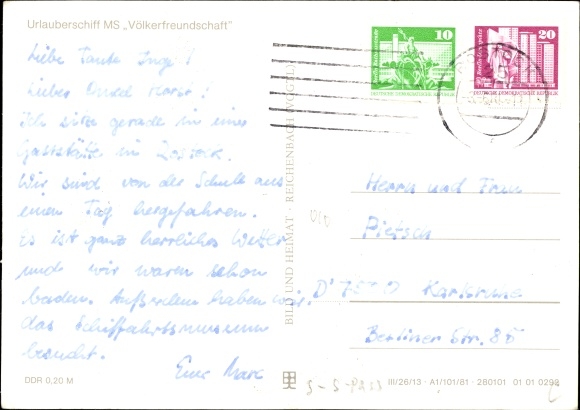 Urlauberschiff MS „Völkerfreundschaft"
Liebe Tante Inge!
Lieber Onkel Horst!
Ich sitze gerade in einer
Gaststätte in Rostock.
Wir sind von der Schule aus
einen Tag hergefahren.
Es ist ganz herrliches Wetter
und wir waren schon
baden. Außerdem haben wir
das Schiffahrtsmuseum
besucht.
Euer Marc
DDR 0,20 M
BILD UND HEIMAT · REICHENBACH (VOGTL)
10
DEUTSCHE DEMOKRATISCHE REPUBLIK
20
DEUTSCHE DEMOKRATISCHE REPUBLIK
Herrn und Frau
Pietsch
Karlsruhe
Berliner Str. 85
III/26/13 · A1/101/81 · 280101 01 01 0292